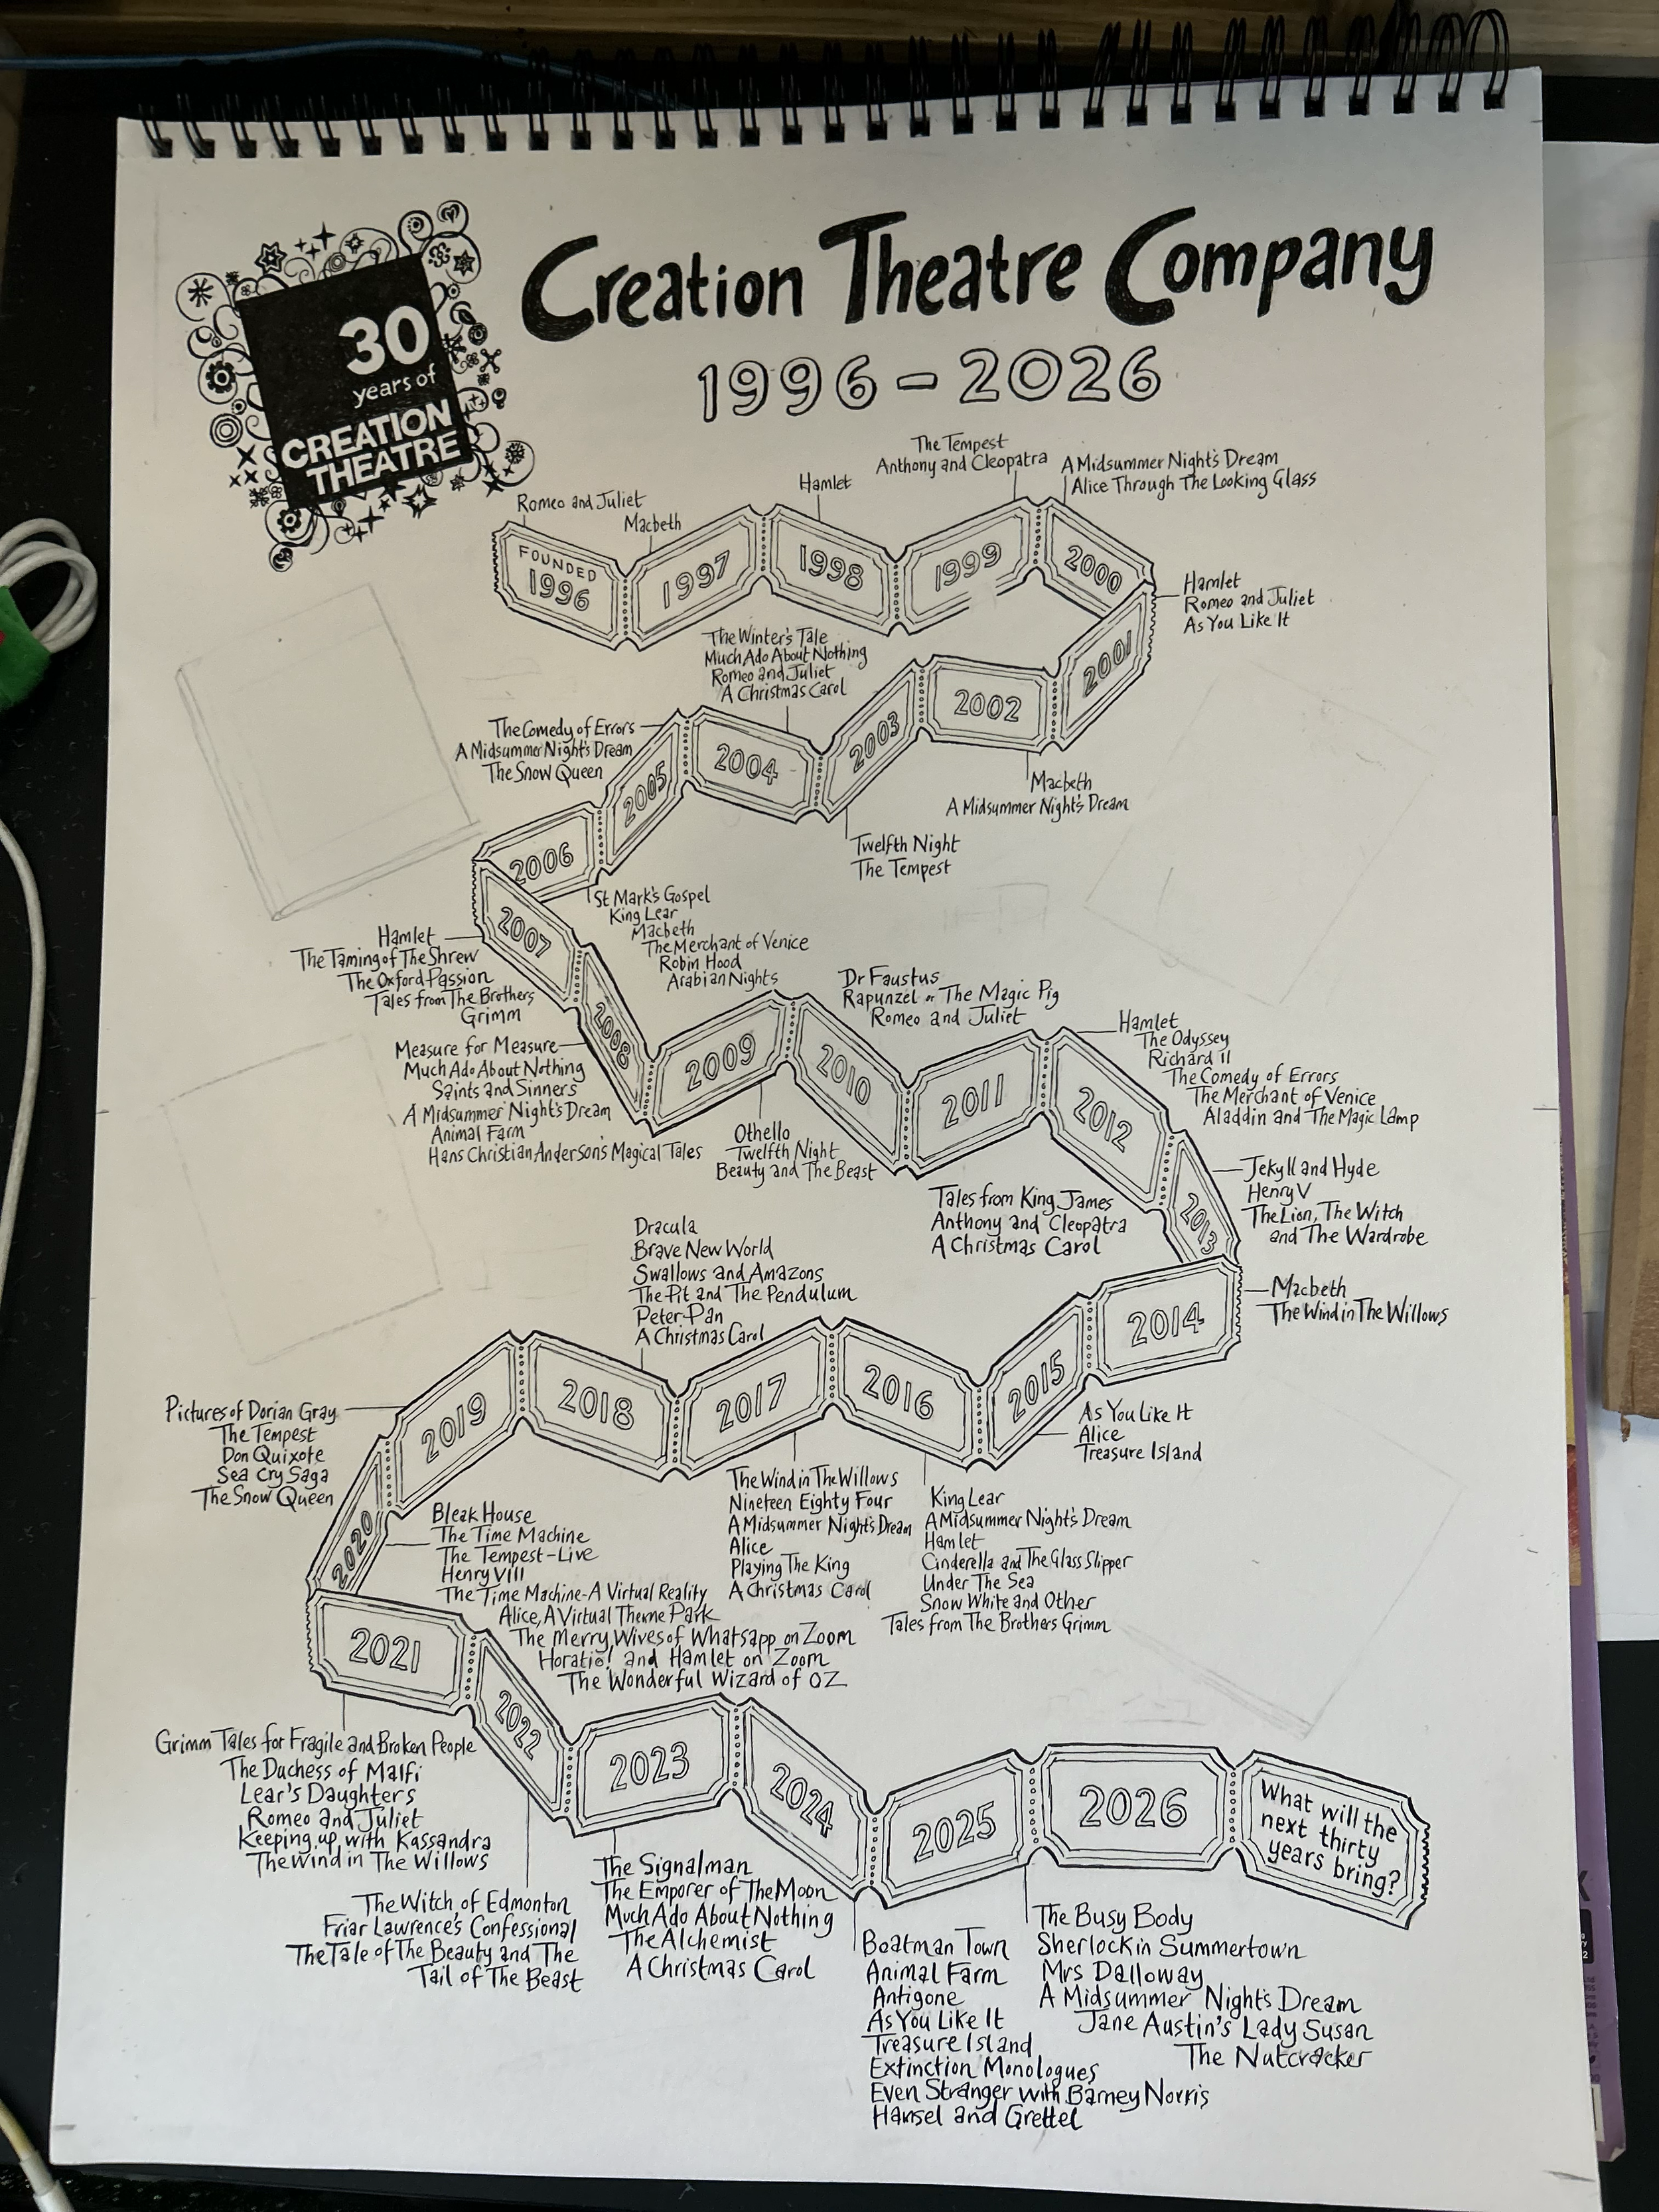 30
years of
CREATION
THEATRE
Creation Theatre Company
1996-2026
Romeo and Juliet
FOUNDED
1996
Macbeth
1997
Hamlet
1998
The Tempest
Anthony and Cleopatra
1999
A Midsummer Night's Dream
Alice Through The Looking Glass
2000
Hamlet
Romeo and Juliet
As You Like It
2001
2002
Macbeth
A Midsummer Night's Dream
2003
Twelfth Night
The Tempest
The Winter's Tale
Much Ado About Nothing
Romeo and Juliet
A Christmas Carol
2004
The Comedy of Errors
A Midsummer Night's Dream
The Snow Queen
2005
2006
St Mark's Gospel
King Lear
Macbeth
The Merchant of Venice
Robin Hood
Arabian Nights
2007
Hamlet
The Taming of The Shrew
The Oxford Passion
Tales from The Brothers
Grimm
2008
Measure for Measure
Much Ado About Nothing
Saints and Sinners
A Midsummer Night's Dream
Animal Farm
Hans Christian Anderson's Magical Tales
2009
Othello
Twelfth Night
Beauty and The Beast
Dr Faustus
Rapunzel or The Magic Pig
Romeo and Juliet
2010
2011
Tales from King James
Anthony and Cleopatra
A Christmas Carol
Hamlet
The Odyssey
Richard II
The Comedy of Errors
The Merchant of Venice
Aladdin and The Magic Lamp
2012
2013
Jekyll and Hyde
Henry V
The Lion, The Witch
and The Wardrobe
2014
Macbeth
The Wind in The Willows
2015
As You Like It
Alice
Treasure Island
2016
King Lear
A Midsummer Night's Dream
Hamlet
Cinderella and The Glass Slipper
Under The Sea
Snow White and Other
Tales from The Brothers Grimm
2017
The Wind in The Willows
Nineteen Eighty Four
A Midsummer Night's Dream
Alice
Playing The King
A Christmas Carol
Dracula
Brave New World
Swallows and Amazons
The Pit and The Pendulum
Peter Pan
A Christmas Carol
2018
2019
Pictures of Dorian Gray
The Tempest
Don Quixote
Sea Cry Saga
The Snow Queen
2020
Bleak House
The Time Machine
The Tempest-Live
Henry VIII
The Time Machine-A Virtual Reality
Alice, A Virtual Theme Park
The Merry Wives of Whatsapp on Zoom
Horatio! and Hamlet on Zoom
The Wonderful Wizard of OZ
2021
Grimm Tales for Fragile and Broken People
The Duchess of Malfi
Lear's Daughters
Romeo and Juliet
Keeping up with Kassandra
The Wind in The Willows
2022
The Witch of Edmonton
Friar Lawrence's Confessional
The Tale of The Beauty and The
Tail of The Beast
2023
The Signalman
The Emporer of The Moon
Much Ado About Nothing
The Alchemist
A Christmas Carol
2024
Boatman Town
Animal Farm
Antigone
As You Like It
Treasure Island
Extinction Monologues
Even Stranger with Barney Norris
Hansel and Grettel
2025
The Busy Body
Sherlock in Summertown
Mrs Dalloway
A Midsummer Night's Dream
Jane Austin's Lady Susan
The Nutcracker
2026
What will the
next thirty
years bring?